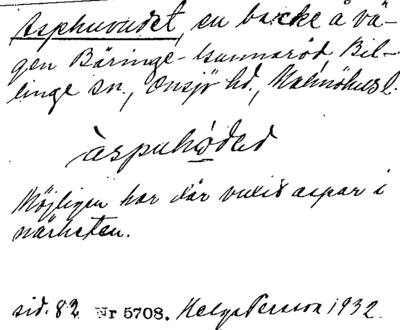 Asphuvudet, en backe å vä-
gen Bäringe-Gunnaröd Bil-
linge sn, Onsjö hd, Malmöhus l.
àspuhǿded
Möjligen har där vuxit aspar i
närheten.
sid. 82 Nr 5708. Helge Persson 1932.